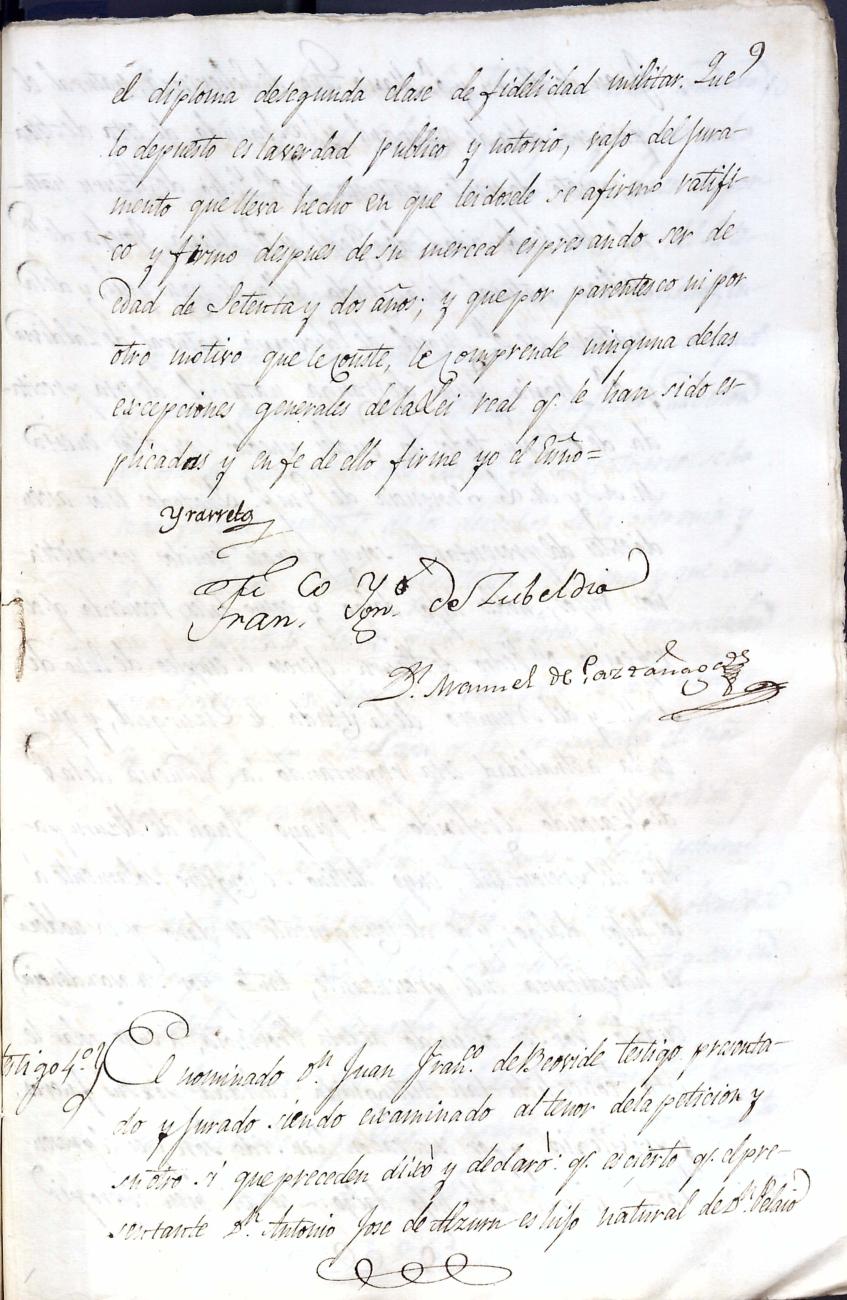 9
el diploma desegunda clase de fidelidad militar. Que
lo depuesto es laverdad publico y notorio, vajo del Jura-
mento que lleva hecho en que leidosele se afirmo ratifi-
co y firmo despues de su merced espresando ser de
edad de Setenta y dos años; y que por parentesco ni por
otro motivo que le conste, le comprende ninguna delas
excepciones generales de la Lei real q.e le han sido es-
plicadas y en fe de ello firme yo el Esño=
Yrarreta
Fran.co Ygn.o de Zubeldia
D.n Manuel de
testigo 4.o
El nominado D.n Juan Fran.co de Beovide testigo presenta-
do y Jurado siendo examinado al tenor dela peticion y
su otro sí que preceden dixò y declarò: q.e es cierto q.e el pre-
sentante D.n Antonio Jose de Alzuru es hijo natural de D.n Pelaio